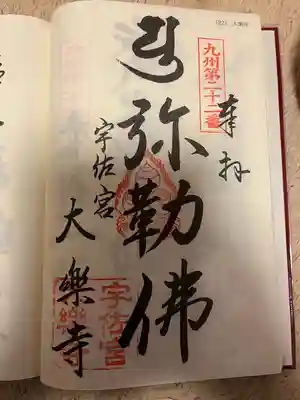 (22) 大楽寺
奉拝
九州第二十二番
弥勒佛
宇佐宮
大樂寺
宇佐宮